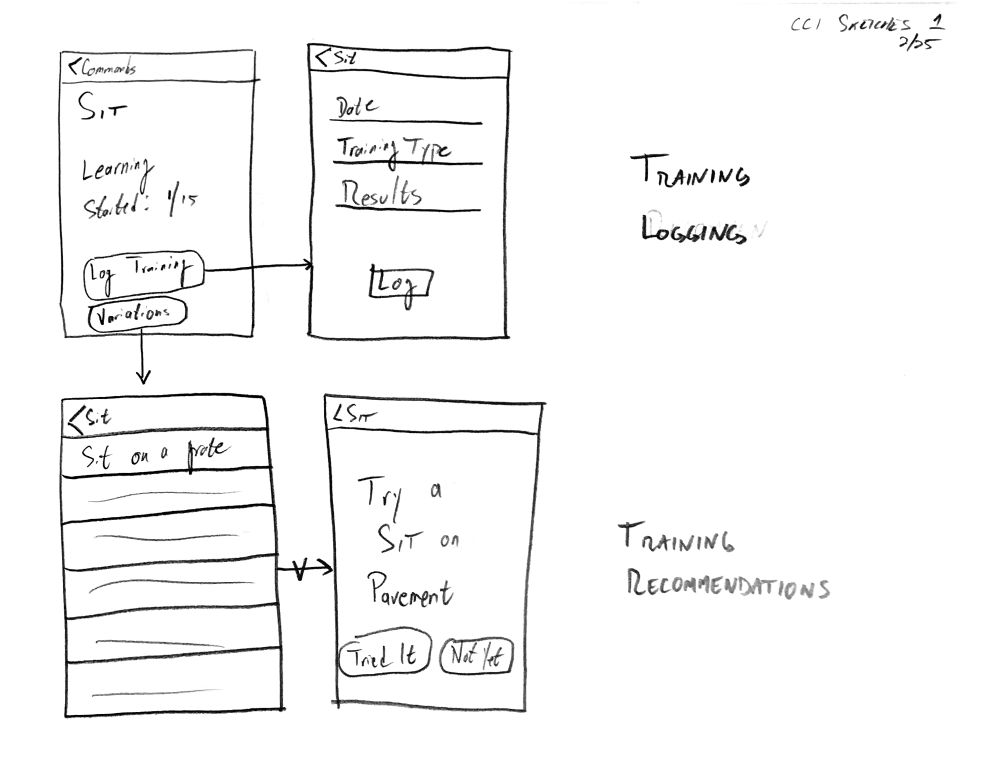 CCI SKETCHES 1
2/25
< Commands
SIT
Learning
Started: 1/15
Log Training
Variations
< Sit
Date
Training Type
Results
Log
TRAINING
LOGGING
< Sit
Sit on a
< SIT
Try a
SIT on
Pavement
Tried It
Not Yet
TRAINING
RECOMMENDATIONS